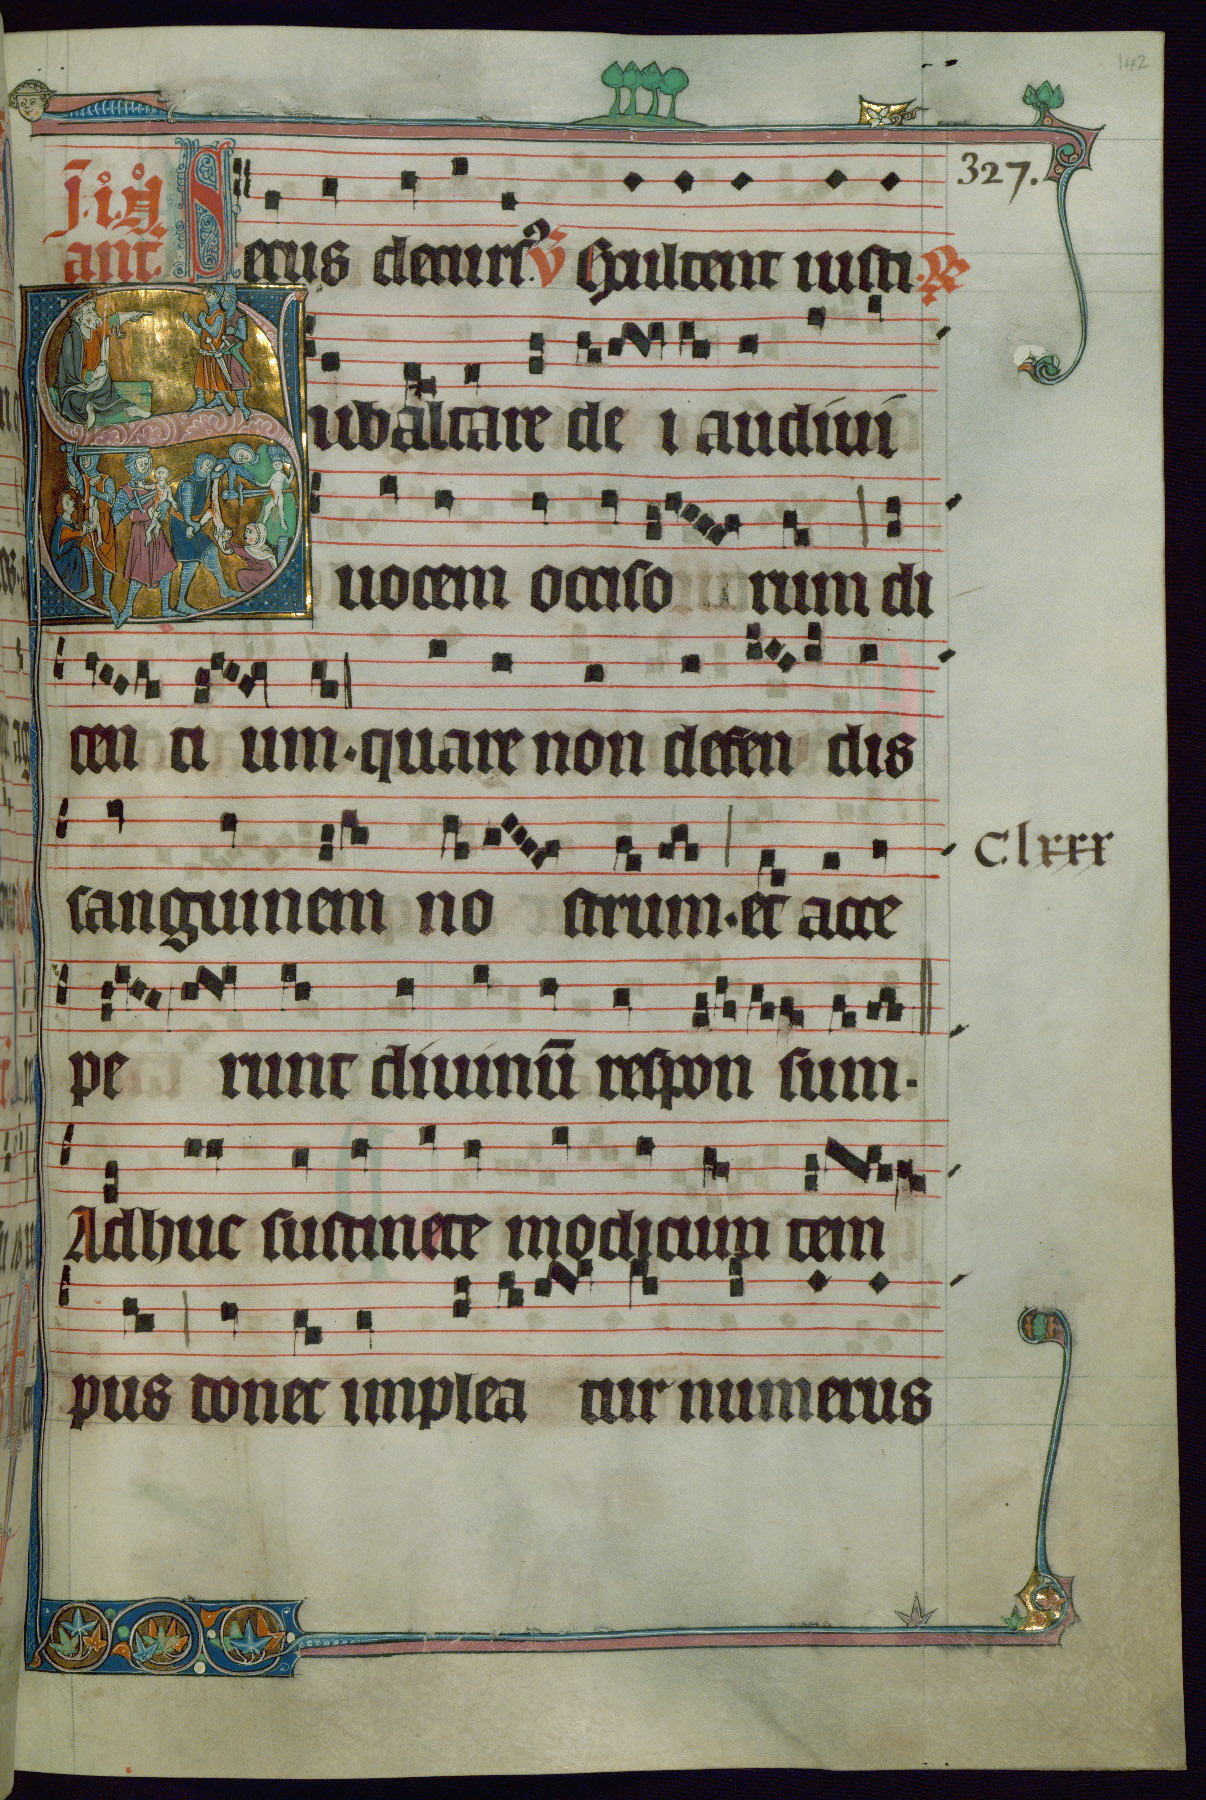 142
327.
ant.
Secus decurs᾿ V Exultent iusti. R
Sub altare de i audiui
uocem occiso rum di
cen ti um. quare non defen dis
sanguinem no strum. et acce
Clxxx
pe runt diuinū respon sum.
Adhuc sustinete modicum tem
pus donec implea tur numerus